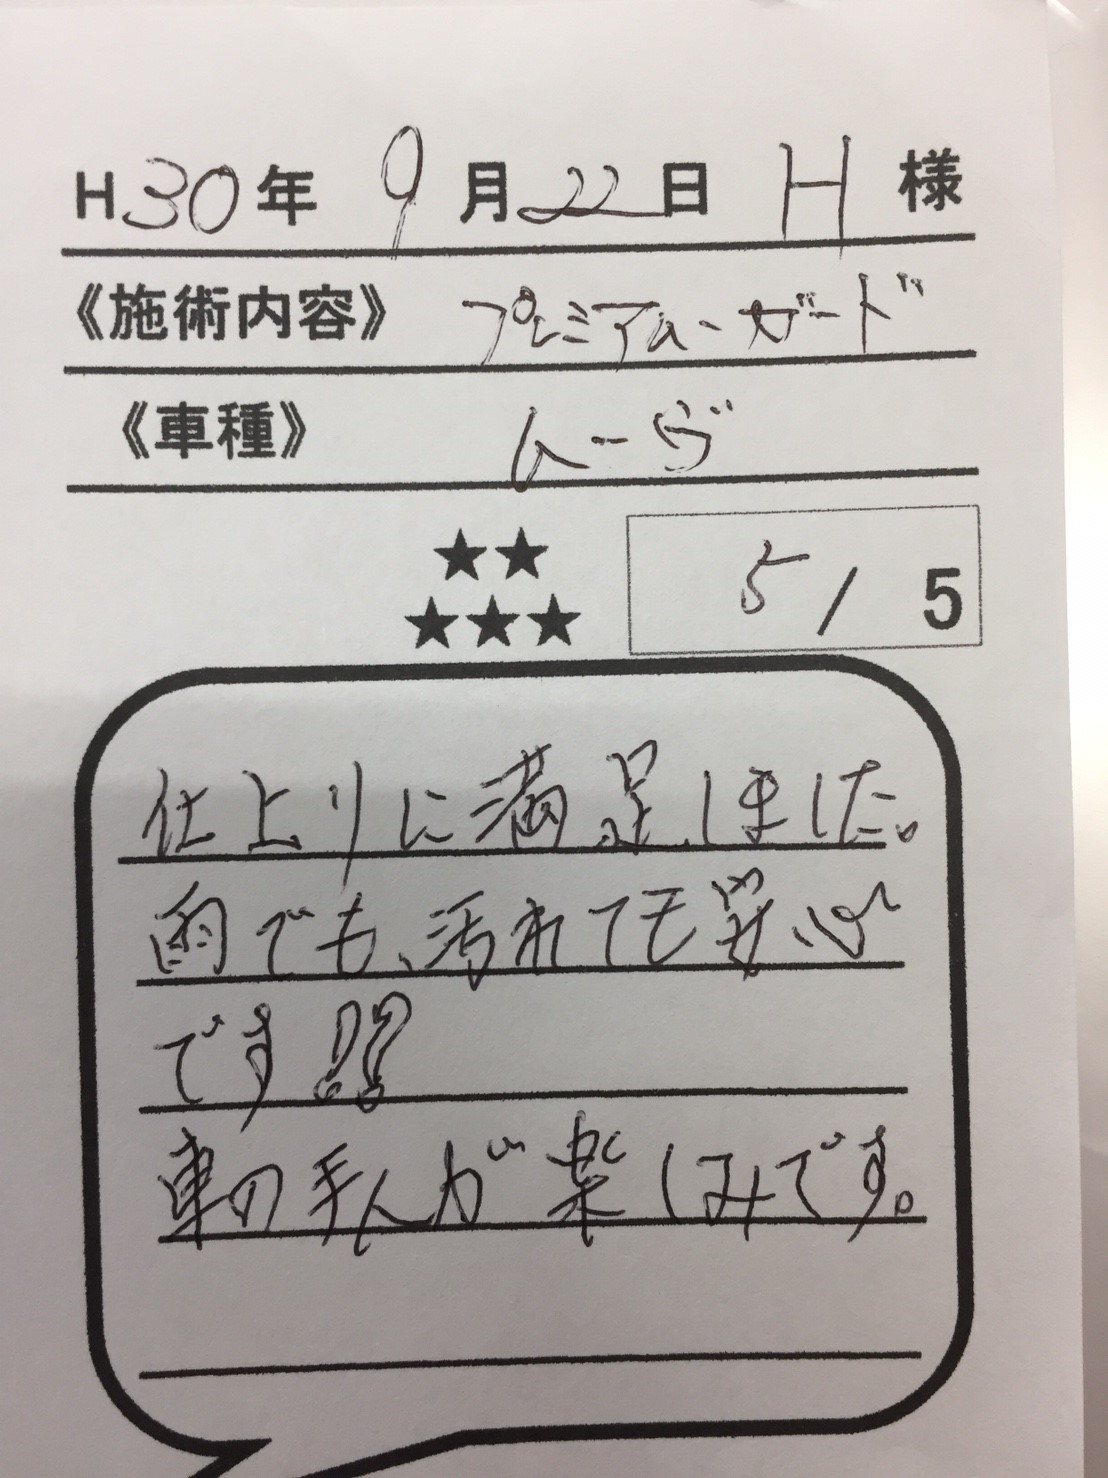 H30年 9月22日 H 様
《施術内容》 プレミアム・ガード
《車種》 ムーヴ
★★
★★★
5/5
仕上りに満足しました。
雨でも、汚れても安心
です!!
車の手入が楽しみです。